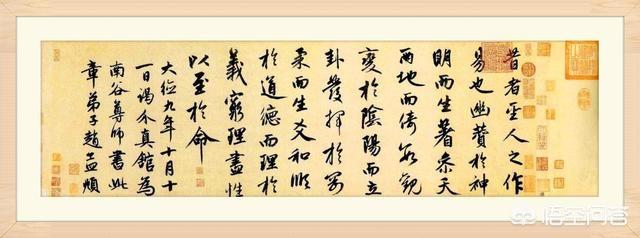 昔者聖人之作
易也幽贊於神
明而生蓍參天
兩地而倚數觀
變於陰陽而立
卦發揮於剛
柔而生爻和順
於道德而理於
義窮理盡性
以至於命
大德九年十月十
一日謁介真館為
南谷尊師書此
章弟子趙孟頫
悟空问答